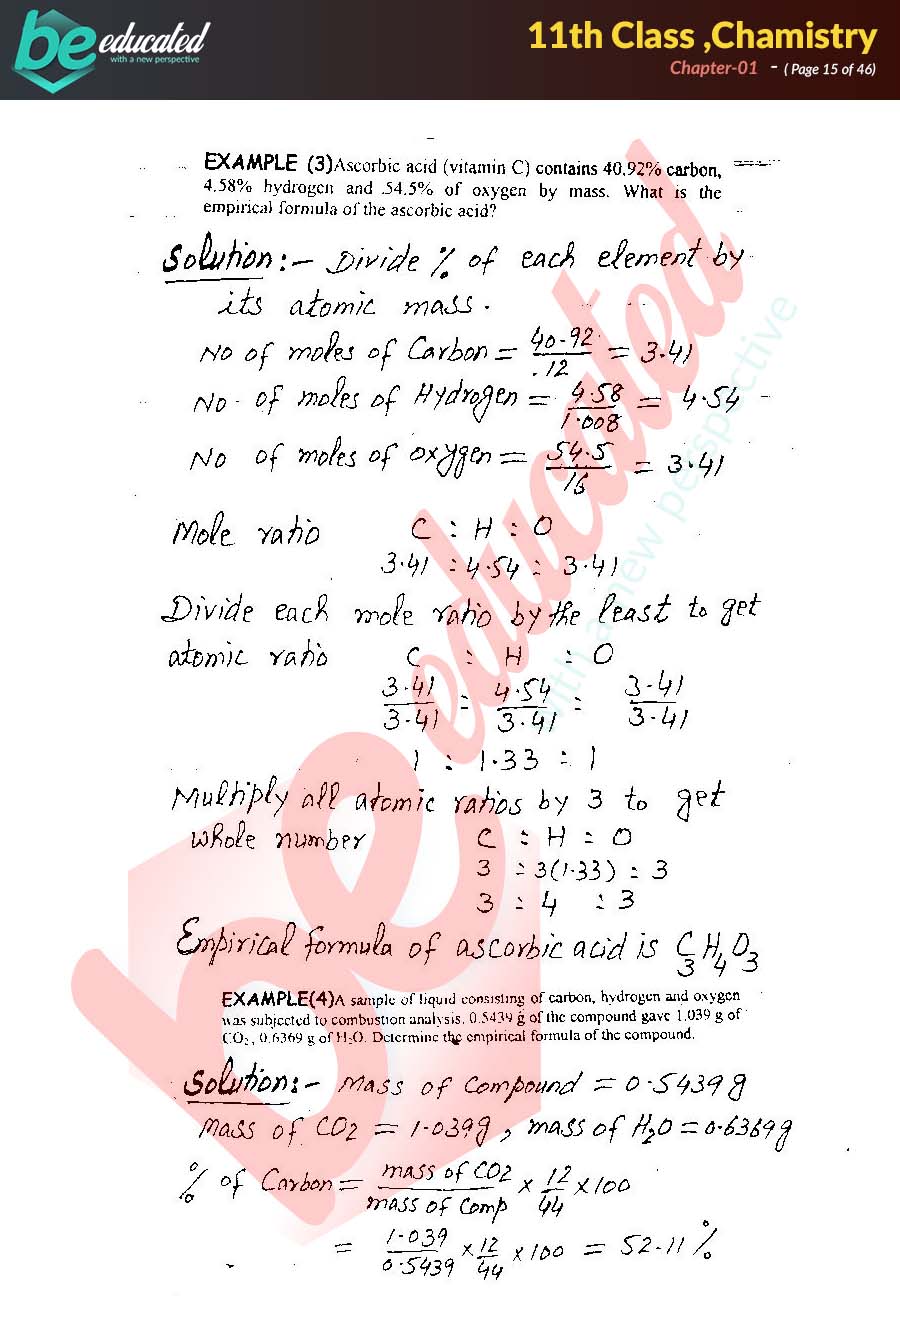 be educated
with a new perspective
11th Class ,Chamistry
Chapter-01 - ( Page 15 of 46)
EXAMPLE (3)Ascorbic acid (vitamin C) contains 40.92% carbon,
4.58% hydrogen and .54.5% of oxygen by mass. What is the
empirical formula of the ascorbic acid?
Solution:- Divide % of each element by
its atomic mass.
No of moles of Carbon = 40.92/12 = 3.41
No. of moles of Hydrogen = 4.58/1.008 = 4.54
No of moles of oxygen = 54.5/16 = 3.41
Mole ratio C : H : O
3.41 : 4.54 : 3.41
Divide each mole ratio by the least to get
atomic ratio C : H : O
3.41/3.41 : 4.54/3.41 : 3.41/3.41
1 : 1.33 : 1
Multiply all atomic ratios by 3 to get
whole number C : H : O
3 : 3(1.33) : 3
3 : 4 : 3
Empirical formula of ascorbic acid is C3H4O3
EXAMPLE(4)A sample of liquid consisting of carbon, hydrogen and oxygen
was subjected to combustion analysis. 0.5439 g of the compound gave 1.039 g of
CO2, 0.6369 g of H2O. Determine the empirical formula of the compound.
Solution:- Mass of Compound = 0.5439g
Mass of CO2 = 1.039g, mass of H2O = 0.6369g
% of Carbon = mass of CO2/mass of Comp × 12/44 × 100
= 1.039/0.5439 × 12/44 × 100 = 52.11%
be educated
with a new perspective